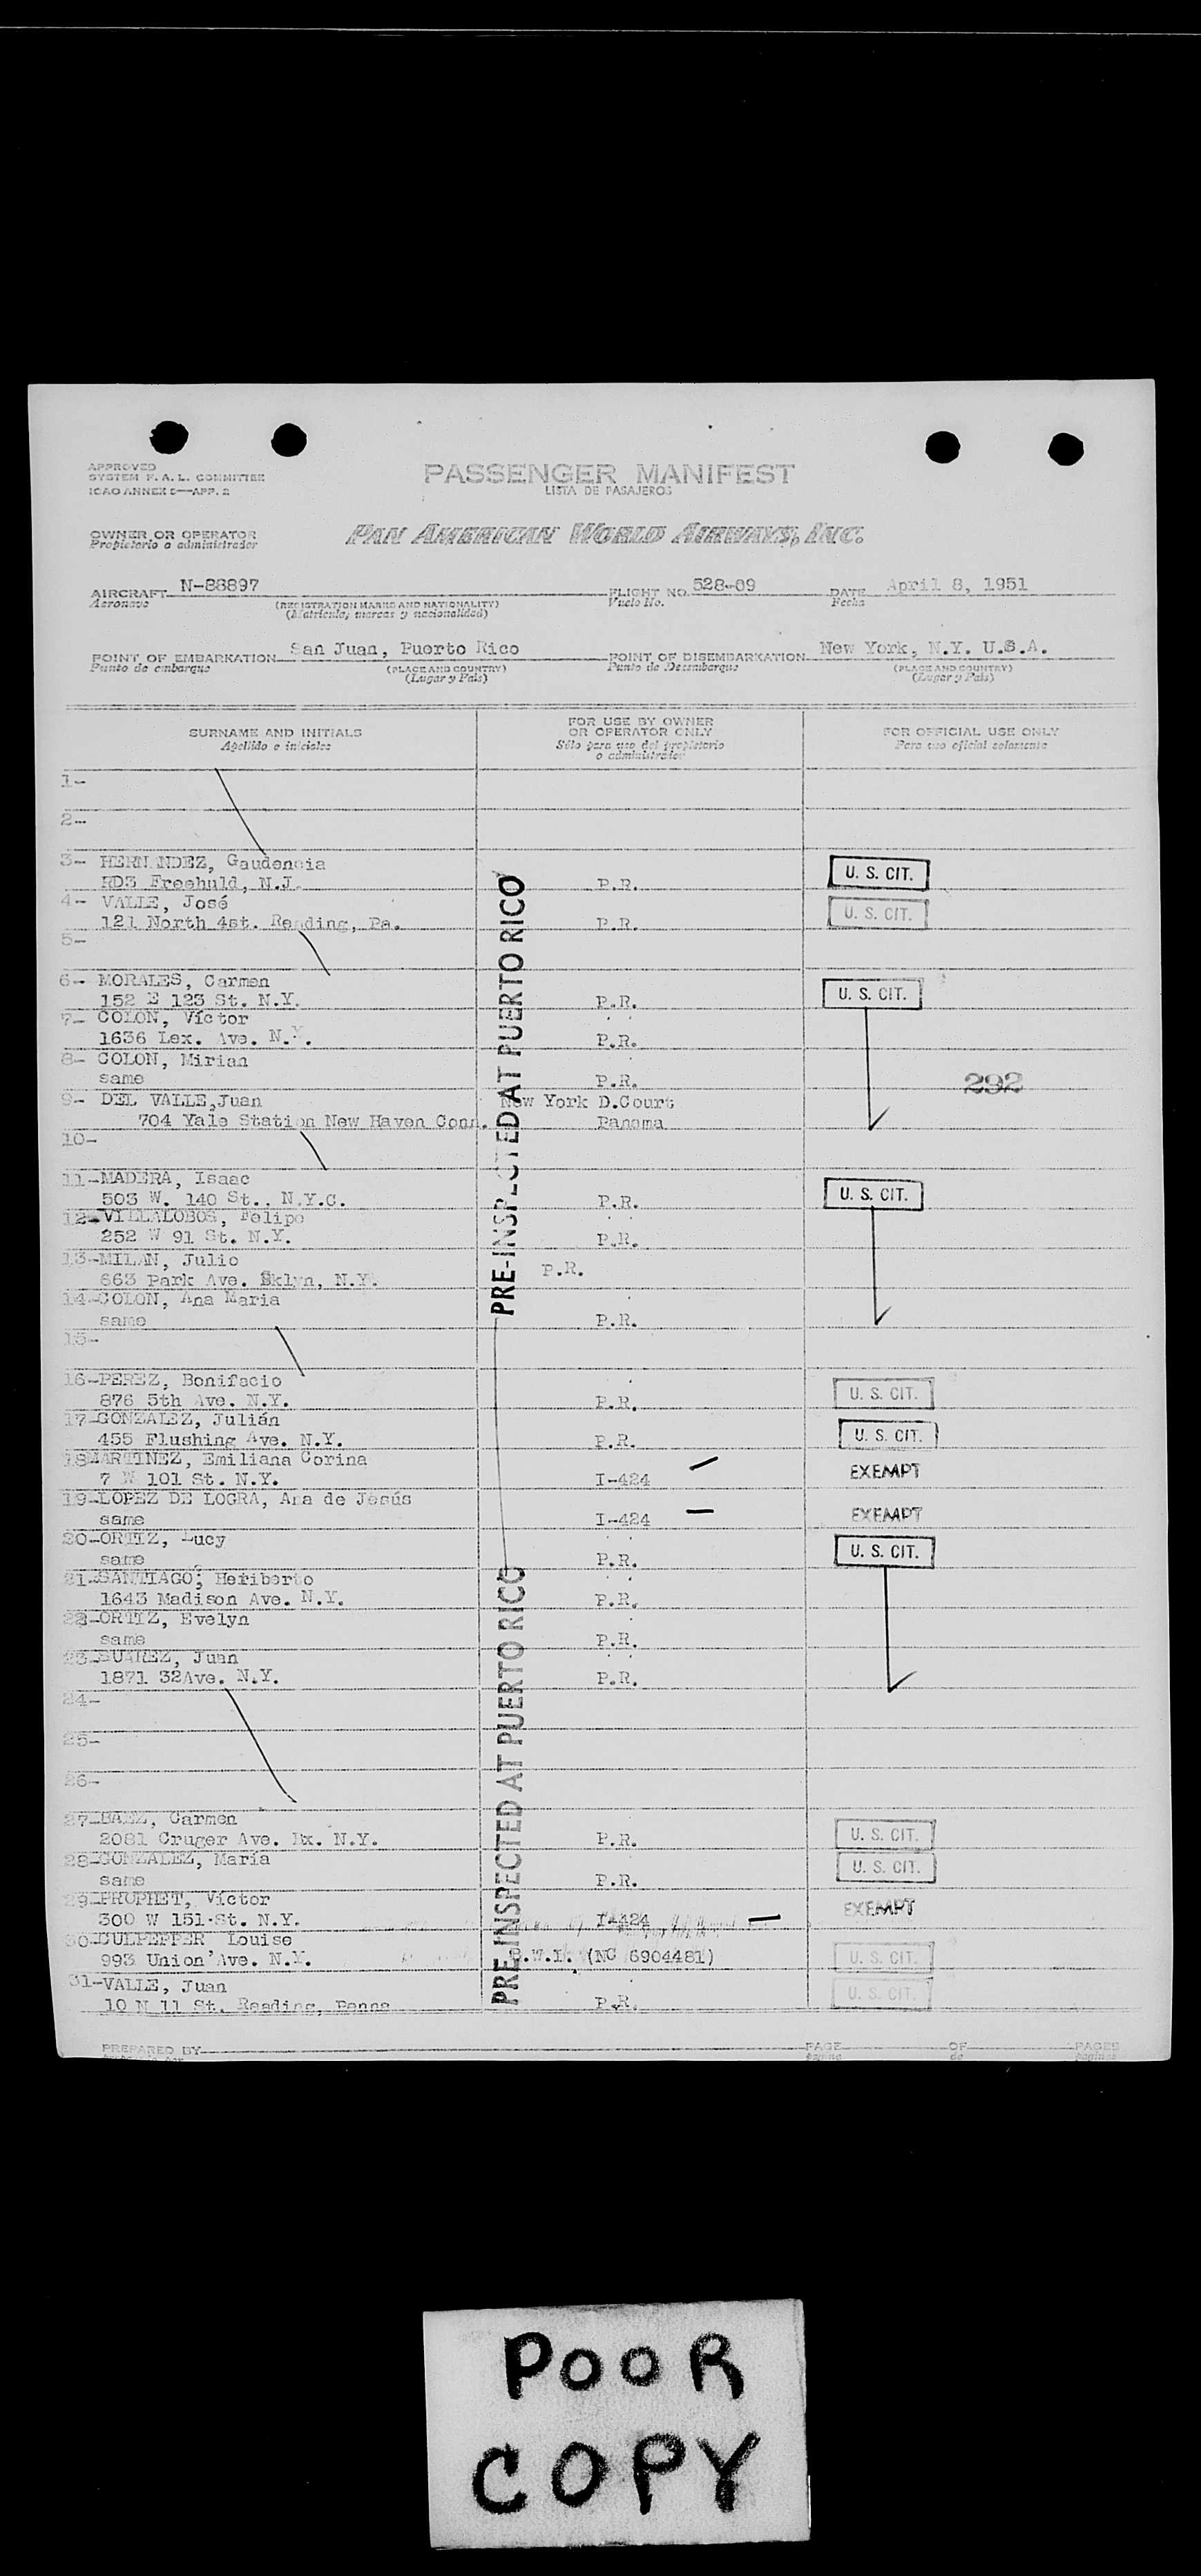 APPROVED
SYSTEM F. A. L. COMMITTEE
ICAO ANNEX 9—APP. 2
PASSENGER MANIFEST
LISTA DE PASAJEROS
OWNER OR OPERATOR
Propietario o administrador
PAN AMERICAN WORLD AIRWAYS, INC.
AIRCRAFT N-88897 FLIGHT NO. 528-09 DATE April 8, 1951
Aeronave (REGISTRATION MARKS AND NATIONALITY) Vuelo No. Fecha
(Matrícula, marcas y nacionalidad)
POINT OF EMBARKATION San Juan, Puerto Rico POINT OF DISEMBARKATION New York, N.Y. U.S.A.
Punto de embarque (PLACE AND COUNTRY) Punto de Desembarque (PLACE AND COUNTRY)
(Lugar y País) (Lugar y País)
SURNAME AND INITIALS FOR USE BY OWNER OR OPERATOR ONLY FOR OFFICIAL USE ONLY
Apellido e iniciales Sólo para uso del propietario o administrador Para uso oficial solamente
1-
2-
3- HERN NDEZ, Gaudencia
RD3 Freehuld, N.J. P.R. U. S. CIT.
4- VALLE, José
121 North 4st. Reading, Pa. P.R. U. S. CIT.
5-
6- MORALES, Carmen
152 E 123 St. N.Y. P.R. U. S. CIT.
7- COLON, Víctor
1636 Lex. Ave. N.Y. P.R.
8- COLON, Mirian
same P.R. 292
9- DEL VALLE,Juan New York D.Court
704 Yale Station New Haven Conn. Panama
10-
11-MADERA, Isaac
503 W. 140 St.. N.Y.C. P.R. U. S. CIT.
12-VILLALOBOS, Felipe
252 W 91 St. N.Y. P.R.
13-MILAN, Julio P.R.
663 Park Ave. Bklyn, N.Y.
14-COLON, Ana Maria
same P.R.
15-
16-PEREZ, Bonifacio
876 5th Ave. N.Y. P.R. U. S. CIT.
17-GONZALEZ, Julián
455 Flushing Ave. N.Y. P.R. U. S. CIT.
18MARTINEZ, Emiliana Corina
7 W 101 St. N.Y. I-424 EXEMPT
19-LOPEZ DE LOGRA, Ana de Jesús
same I-424 EXEMPT
20-ORTIZ, Lucy
same P.R. U. S. CIT.
21-SANTIAGO, Heriberto
1643 Madison Ave. N.Y. P.R.
22-ORTIZ, Evelyn
same P.R.
23-SUAREZ, Juan
1871 32Ave. N.Y. P.R.
24-
25-
26-
27-BAEZ, Carmen
2081 Cruger Ave. Bx. N.Y. P.R. U. S. CIT.
28-GONZALEZ, María
same P.R. U. S. CIT.
29-PROPHET, Víctor
300 W 151 St. N.Y. I-424 EXEMPT
30-CULPEPPER Louise
993 Union Ave. N.Y. B.W.I. (NC 6904481) U. S. CIT.
31-VALLE, Juan
10 N 11 St. Reading, Penna P.R. U. S. CIT.
PRE-INSPECTED AT PUERTO RICO
PRE-INSPECTED AT PUERTO RICO
PREPARED BY PAGE OF PAGES
POOR
COPY